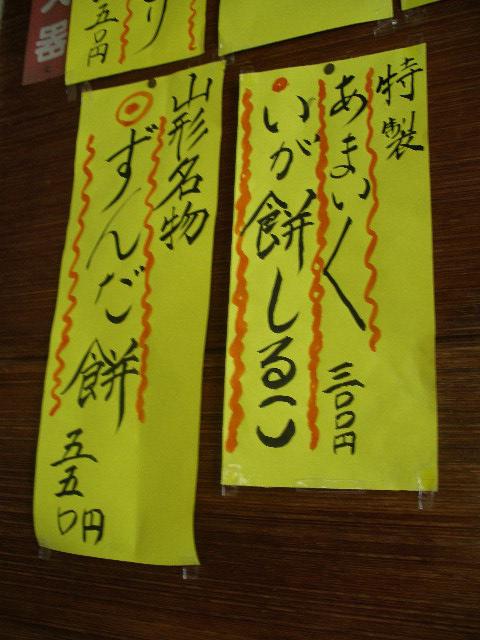 特製
あまい〱
いが餅しるこ
三〇〇円
山形名物
ずんだ餅
五五〇円
り
五〇円
器